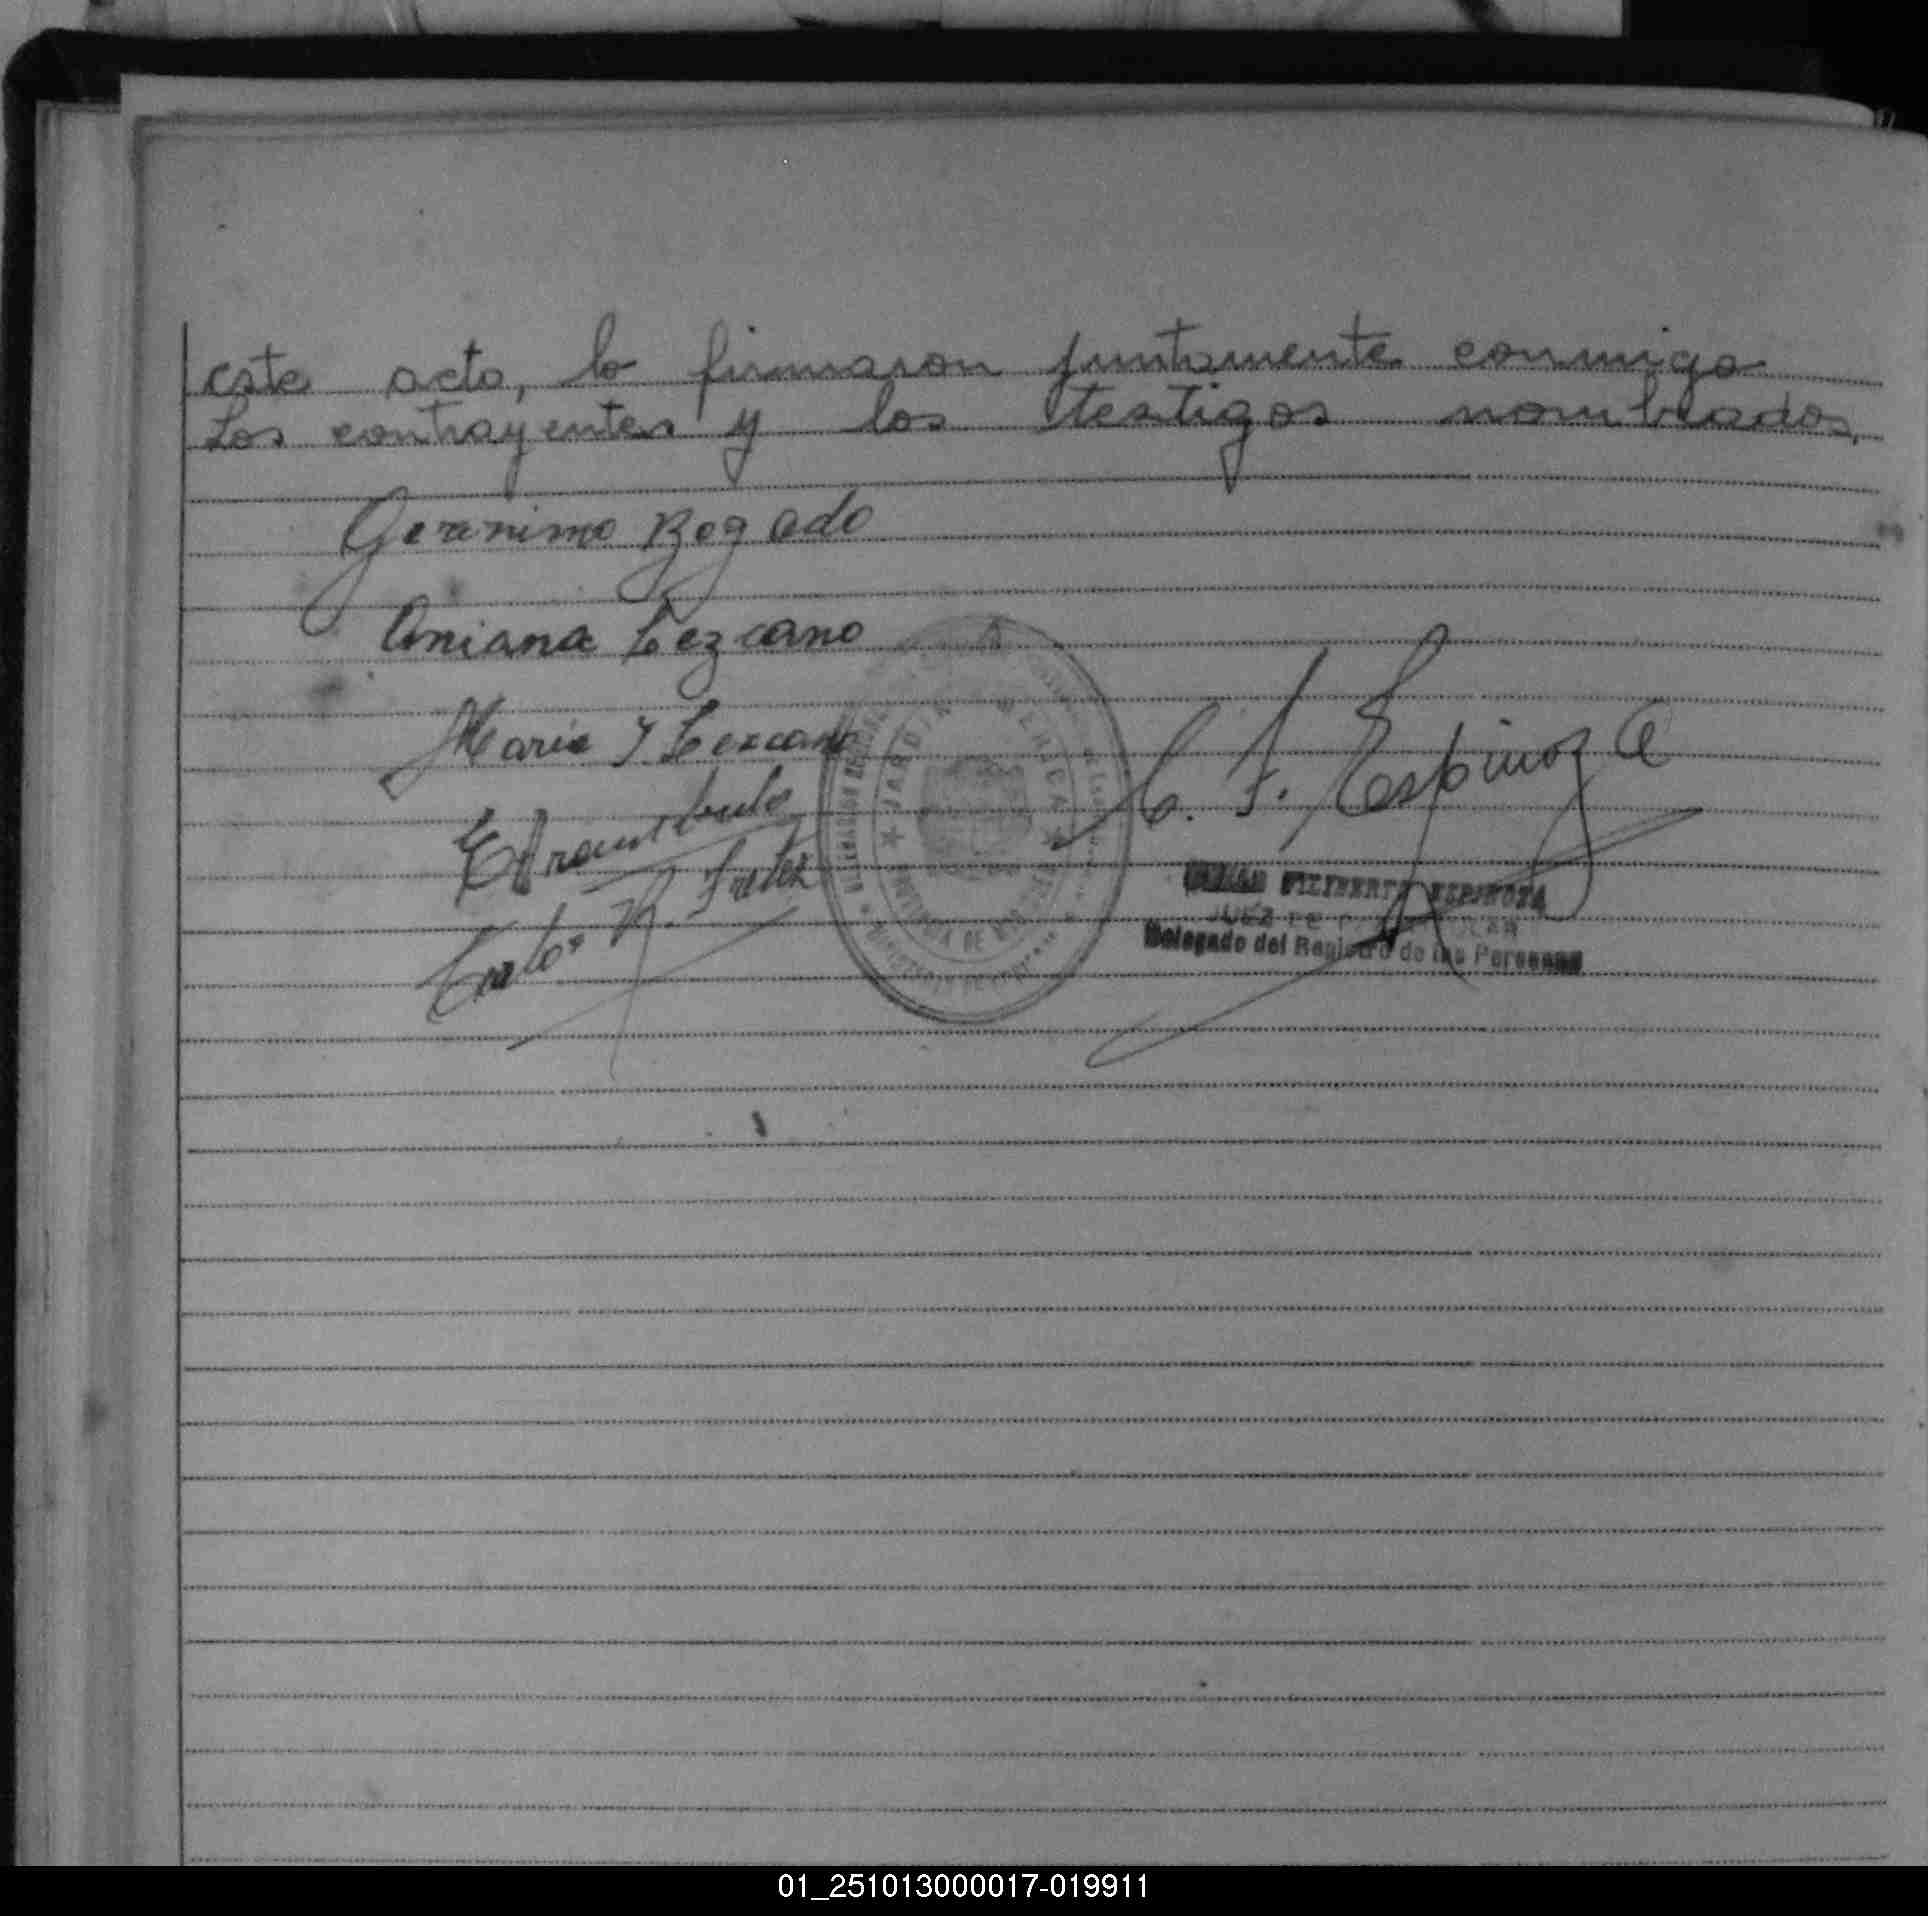 este acto, lo firmaron juntamente conmigo
Los contrayentes y los testigos nombrados.
Geronimo Bogado
Aniana Lezcano
Maria Y Lezcano
C. F. Espinoza
Carlos R.
JARDIN AMERICA
FILIBERTO ESPINOZA
JUEZ DE
Delegado del Registro de las Personas
01_251013000017-019911